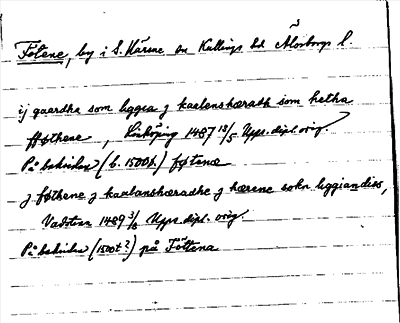 Fötene, by i S. Härene sn Kullings hd Älvsborgs l.
ij gaardha som liggia j kaalenshæradh som hetha
fføthene, Linköping 1487 18/5 Upps. dipl. orig.
På baksidan (b. 1500t.) føtenæ
j føthene j kaalanshæradhe j hærene sokn liggiandiss,
Vadstena 1489 3/8 Upps. dipl. orig.
På baksidan (1500t?) på Föttena